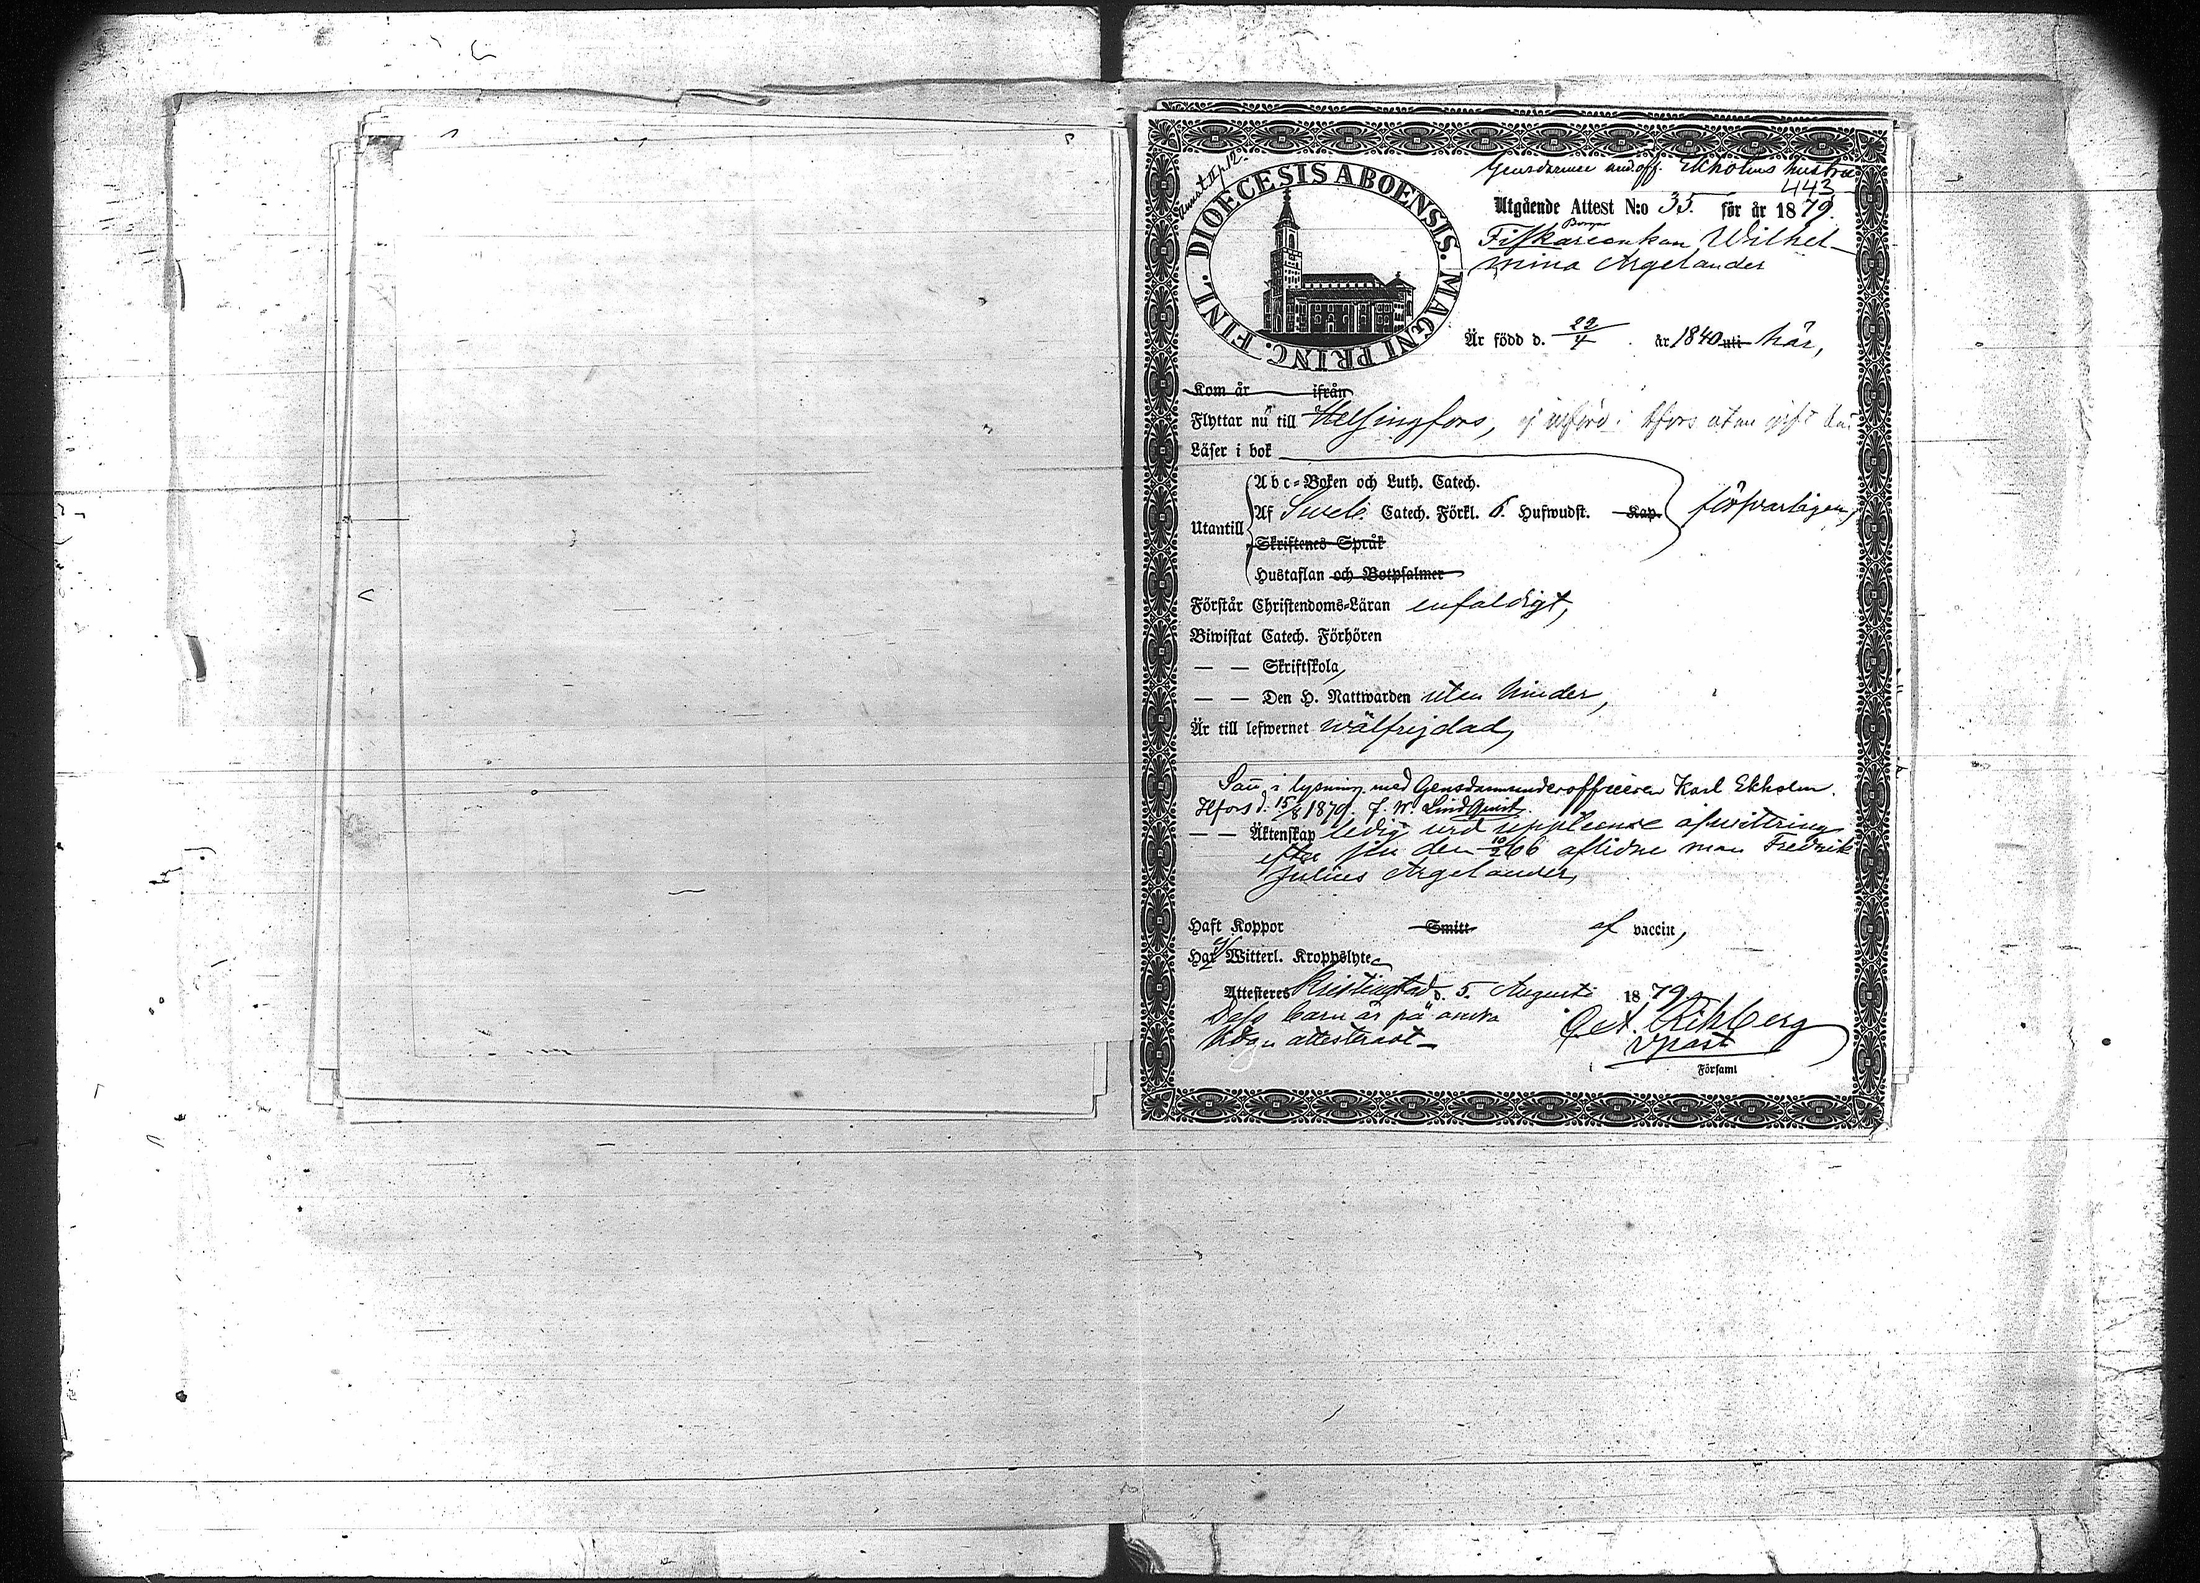 Gensdarme und.off. Ekholms hustru
443
DIOECESIS ABOENSIS. MAGNI PRINC. FINL.
Utgående Attest N:o 35. för år 1879.
Wilhel-
mina Argelander
Är född d. 22/4 år 1840 uti här,
Kom år ifrån
Flyttar nu till Helsingfors, ej införd i Hfors utan
Läser i bok
Abc-Boken och Luth. Catech.
Utantill Af Sveb. Catech. Förkl. 6. Hufwudst. Kap. försvarligen,
Skriftenes Språk
Hustaflan och Botpsalmer
Förstår Christendoms-Läran enfaldigt,
Biwistat Catech. Förhören
— — Skriftskola,
— — Den H. Nattwarden utan hinder,
Är till lefwernet wälfrejdad,
i lysning med Gensdarmunderofficeren Karl Ekholm.
Hfors d. 15/8 1879. F. W. Lindquist.
— — Äktenskap ledig med afwittring
efter sin den 10/2 66 aflidne man Fredrik
Julius Argelander,
Haft Koppor Smitt af vaccin,
Har ej Witterl. Kroppslyte
Attesteres Kristinestad d. 5. Augusti 1879.
Dess barn är på andra
sidan attesteradt —
Rehberg
vpast
Församl